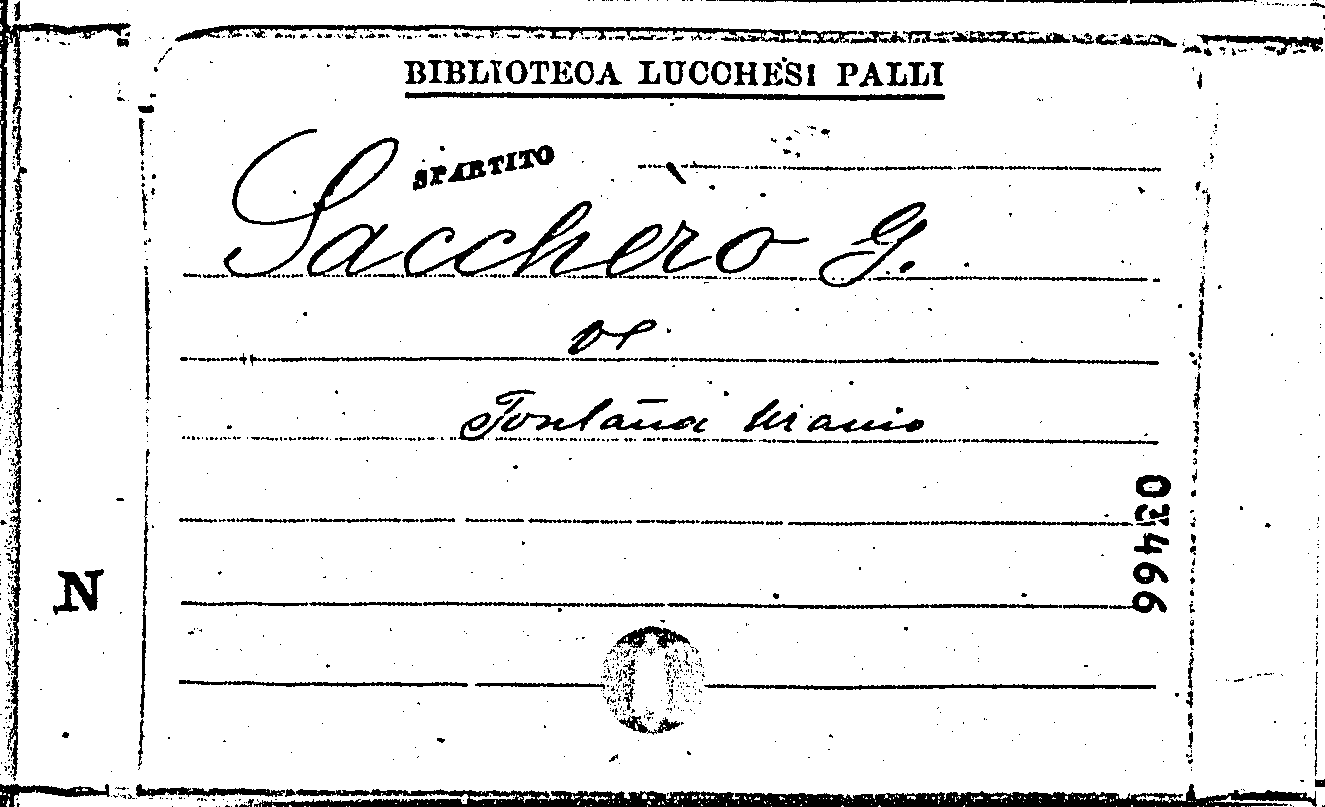 BIBLIOTECA LUCCHESI PALLI
SPARTITO
Sacchèro G.
Ve
Fontana Uranio
03466
N